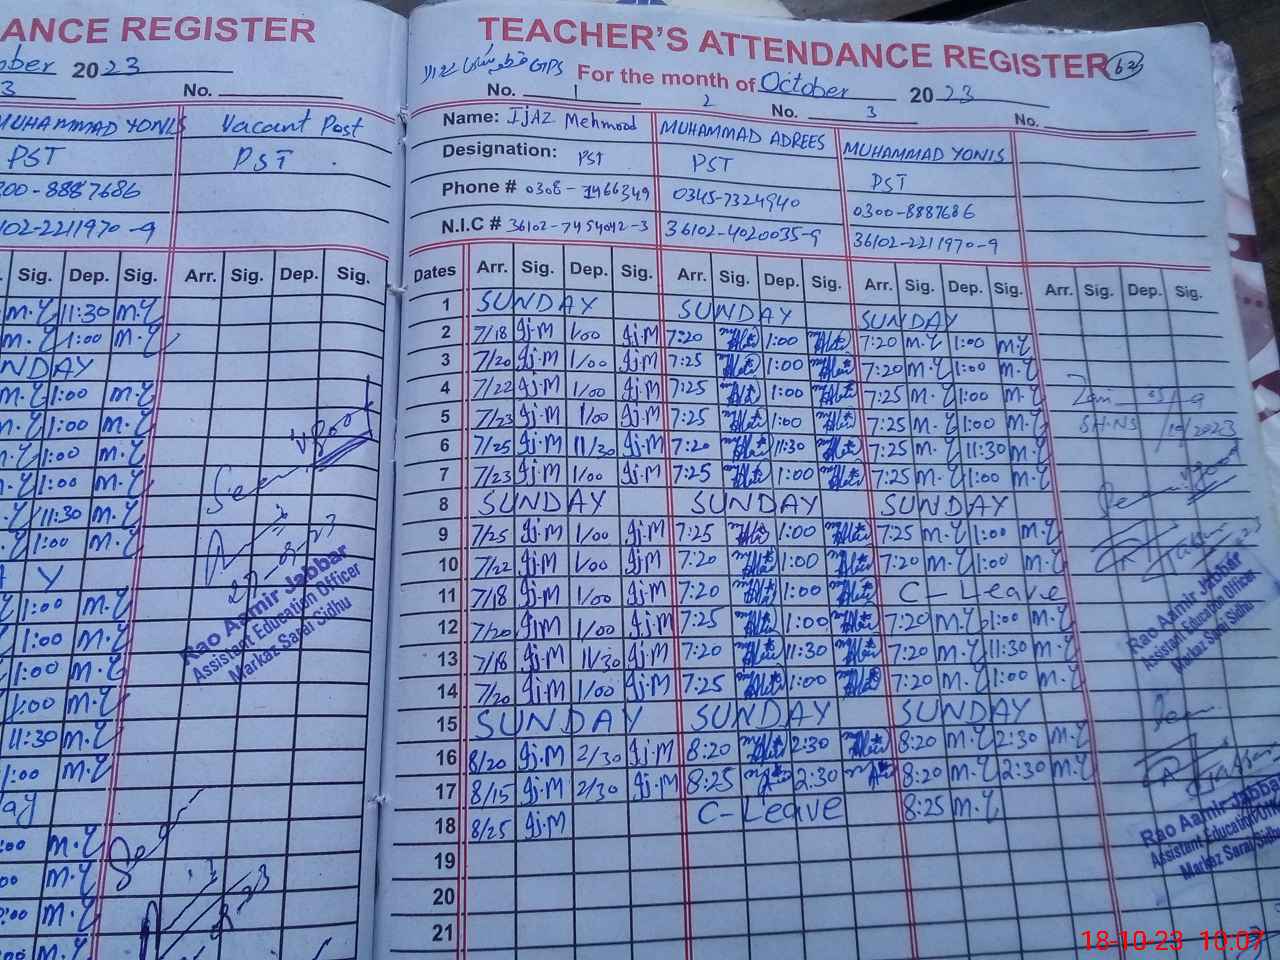 ANCE REGISTER
ber 2023
3 No.
MUHAMMAD YONIS Vacant Post
PST PST
300-8887686
102-2211970-9
Sig. Dep. Sig. Arr. Sig. Dep. Sig.
m.Y 11:30 m.Y
m.Y 1:00 m.Y
NDAY
m.Y 1:00 m.Y
m.Y 1:00 m.Y
1:00 m.Y
1:00 m.Y
11:30 m.Y
1:00 m.Y
A Y
1:00 m.Y
1:00 m.Y
1:00 m.Y
1:00 m.Y
11:30 m.Y
1:00 m.Y
ay
:00 m.Y
m.Y
m.Y
m.Y
Rao Aamir Jabbar
Assistant Education Officer
Markaz Sarai Sidhu
TEACHER'S ATTENDANCE REGISTER 62
GPS For the month of October 2023
No. 1 2 No. 3 No.
Name: IJAZ Mehmood MUHAMMAD ADREES MUHAMMAD YONIS
Designation: PST PST PST
Phone # 0308-7466349 0345-7324940 0300-8887686
N.I.C # 36102-7454042-3 36102-4020035-9 36102-2211970-9
Dates Arr. Sig. Dep. Sig. Arr. Sig. Dep. Sig. Arr. Sig. Dep. Sig. Arr. Sig. Dep. Sig.
1 SUNDAY SUNDAY SUNDAY
2 7/18 Ij.M 1/00 Ij.M 7:20 1:00 7:20 M.Y 1:00 M.Y
3 7/20 Ij.M 1/00 Ij.M 7:25 1:00 7:20 M.Y 1:00 M.Y
4 7/22 Ij.M 1/00 Ij.M 7:25 1:00 7:25 M.Y 1:00 M.Y
5 7/23 Ij.M 1/00 Ij.M 7:25 1:00 7:25 M.Y 1:00 M.Y
6 7/25 Ij.M 11/30 Ij.M 7:20 11:30 7:25 M.Y 11:30 M.Y
7 7/23 Ij.M 1/00 Ij.M 7:25 1:00 7:25 M.Y 1:00 M.Y
8 SUNDAY SUNDAY SUNDAY
9 7/25 Ij.M 1/00 Ij.M 7:25 1:00 7:25 M.Y 1:00 M.Y
10 7/22 Ij.M 1/00 Ij.M 7:20 1:00 7:20 M.Y 1:00 M.Y
11 7/18 Ij.M 1/00 Ij.M 7:20 1:00 C-Leave
12 7/20 Ij.M 1/00 Ij.M 7:25 1:00 7:20 M.Y 1:00 M.Y
13 7/18 Ij.M 11/30 Ij.M 7:20 11:30 7:20 M.Y 11:30 M.Y
14 7/20 Ij.M 1/00 Ij.M 7:25 1:00 7:20 M.Y 1:00 M.Y
15 SUNDAY SUNDAY SUNDAY
16 8/20 Ij.M 2/30 Ij.M 8:20 2:30 8:20 M.Y 2:30 M.Y
17 8/15 Ij.M 2/30 Ij.M 8:25 2:30 8:20 M.Y 2:30 M.Y
18 8/25 Ij.M C-Leave 8:25 M.Y
19
20
21
Rao Aamir Jabbar
Assistant Education Officer
Markaz Sarai Sidhu
Rao Aamir Jabbar
Assistant Education Offi
Markaz Sarai Sidh
18-10-23 10:07